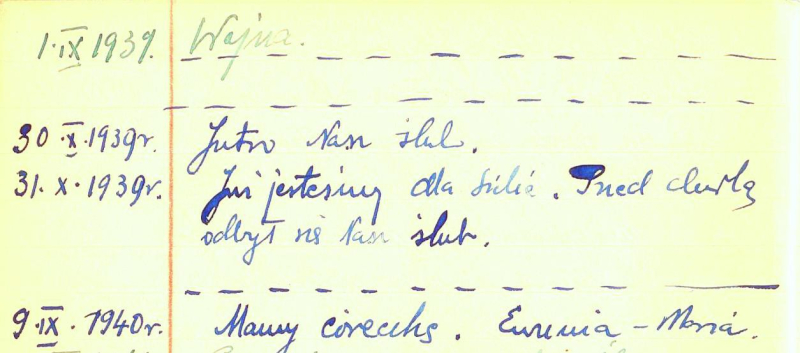 1.IX 1939. Wojna.
30.X.1939r. Jutro Nasz ślub.
31.X.1939r. Już jesteśmy dla siebie. Przed chwilą
odbył się Nasz ślub.
9.IX.1940r. Mamy córeczkę. Eugenia - Maria.